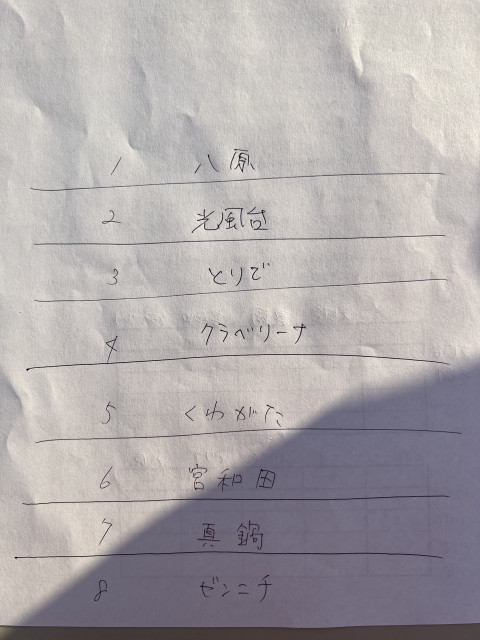 1 八原
2 光風台
3 とりで
4 クラベリーナ
5 くわがた
6 宮和田
7 真鍋
8 ゼンニチ